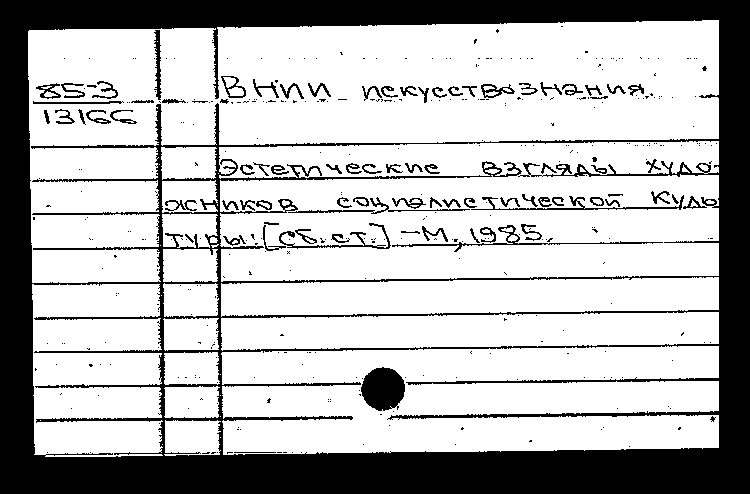 85-3 ВНИИ искусствознания.
13166
Эстетические взгляды худо-
жников социалистической куль
туры: [сб. ст.] - М., 1985.